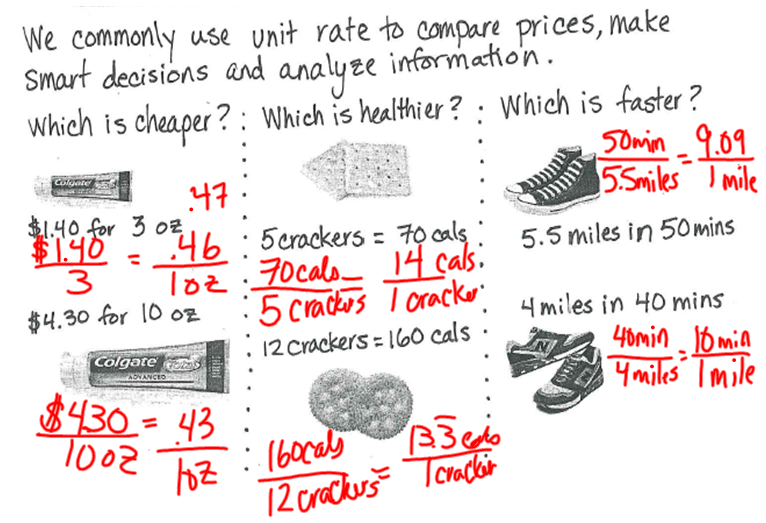 We commonly use unit rate to compare prices, make
Smart decisions and analyze information.
Which is cheaper?
Colgate
.47
$1.40 for 3 oz
$1.40 / 3 = .46 / 1oz
$4.30 for 10 oz
Colgate
TOTAL
ADVANCED
$4.30 / 10oz = .43 / 1oz
Which is healthier?
5 crackers = 70 cals
70 cals / 5 crackers = 14 cals / 1 cracker
12 crackers = 160 cals
160 cals / 12 crackers = 13.3 cals / 1 cracker
Which is faster?
50 min / 5.5 miles = 9.09 / 1 mile
5.5 miles in 50 mins
4 miles in 40 mins
N
40 min / 4 miles = 10 min / 1 mile